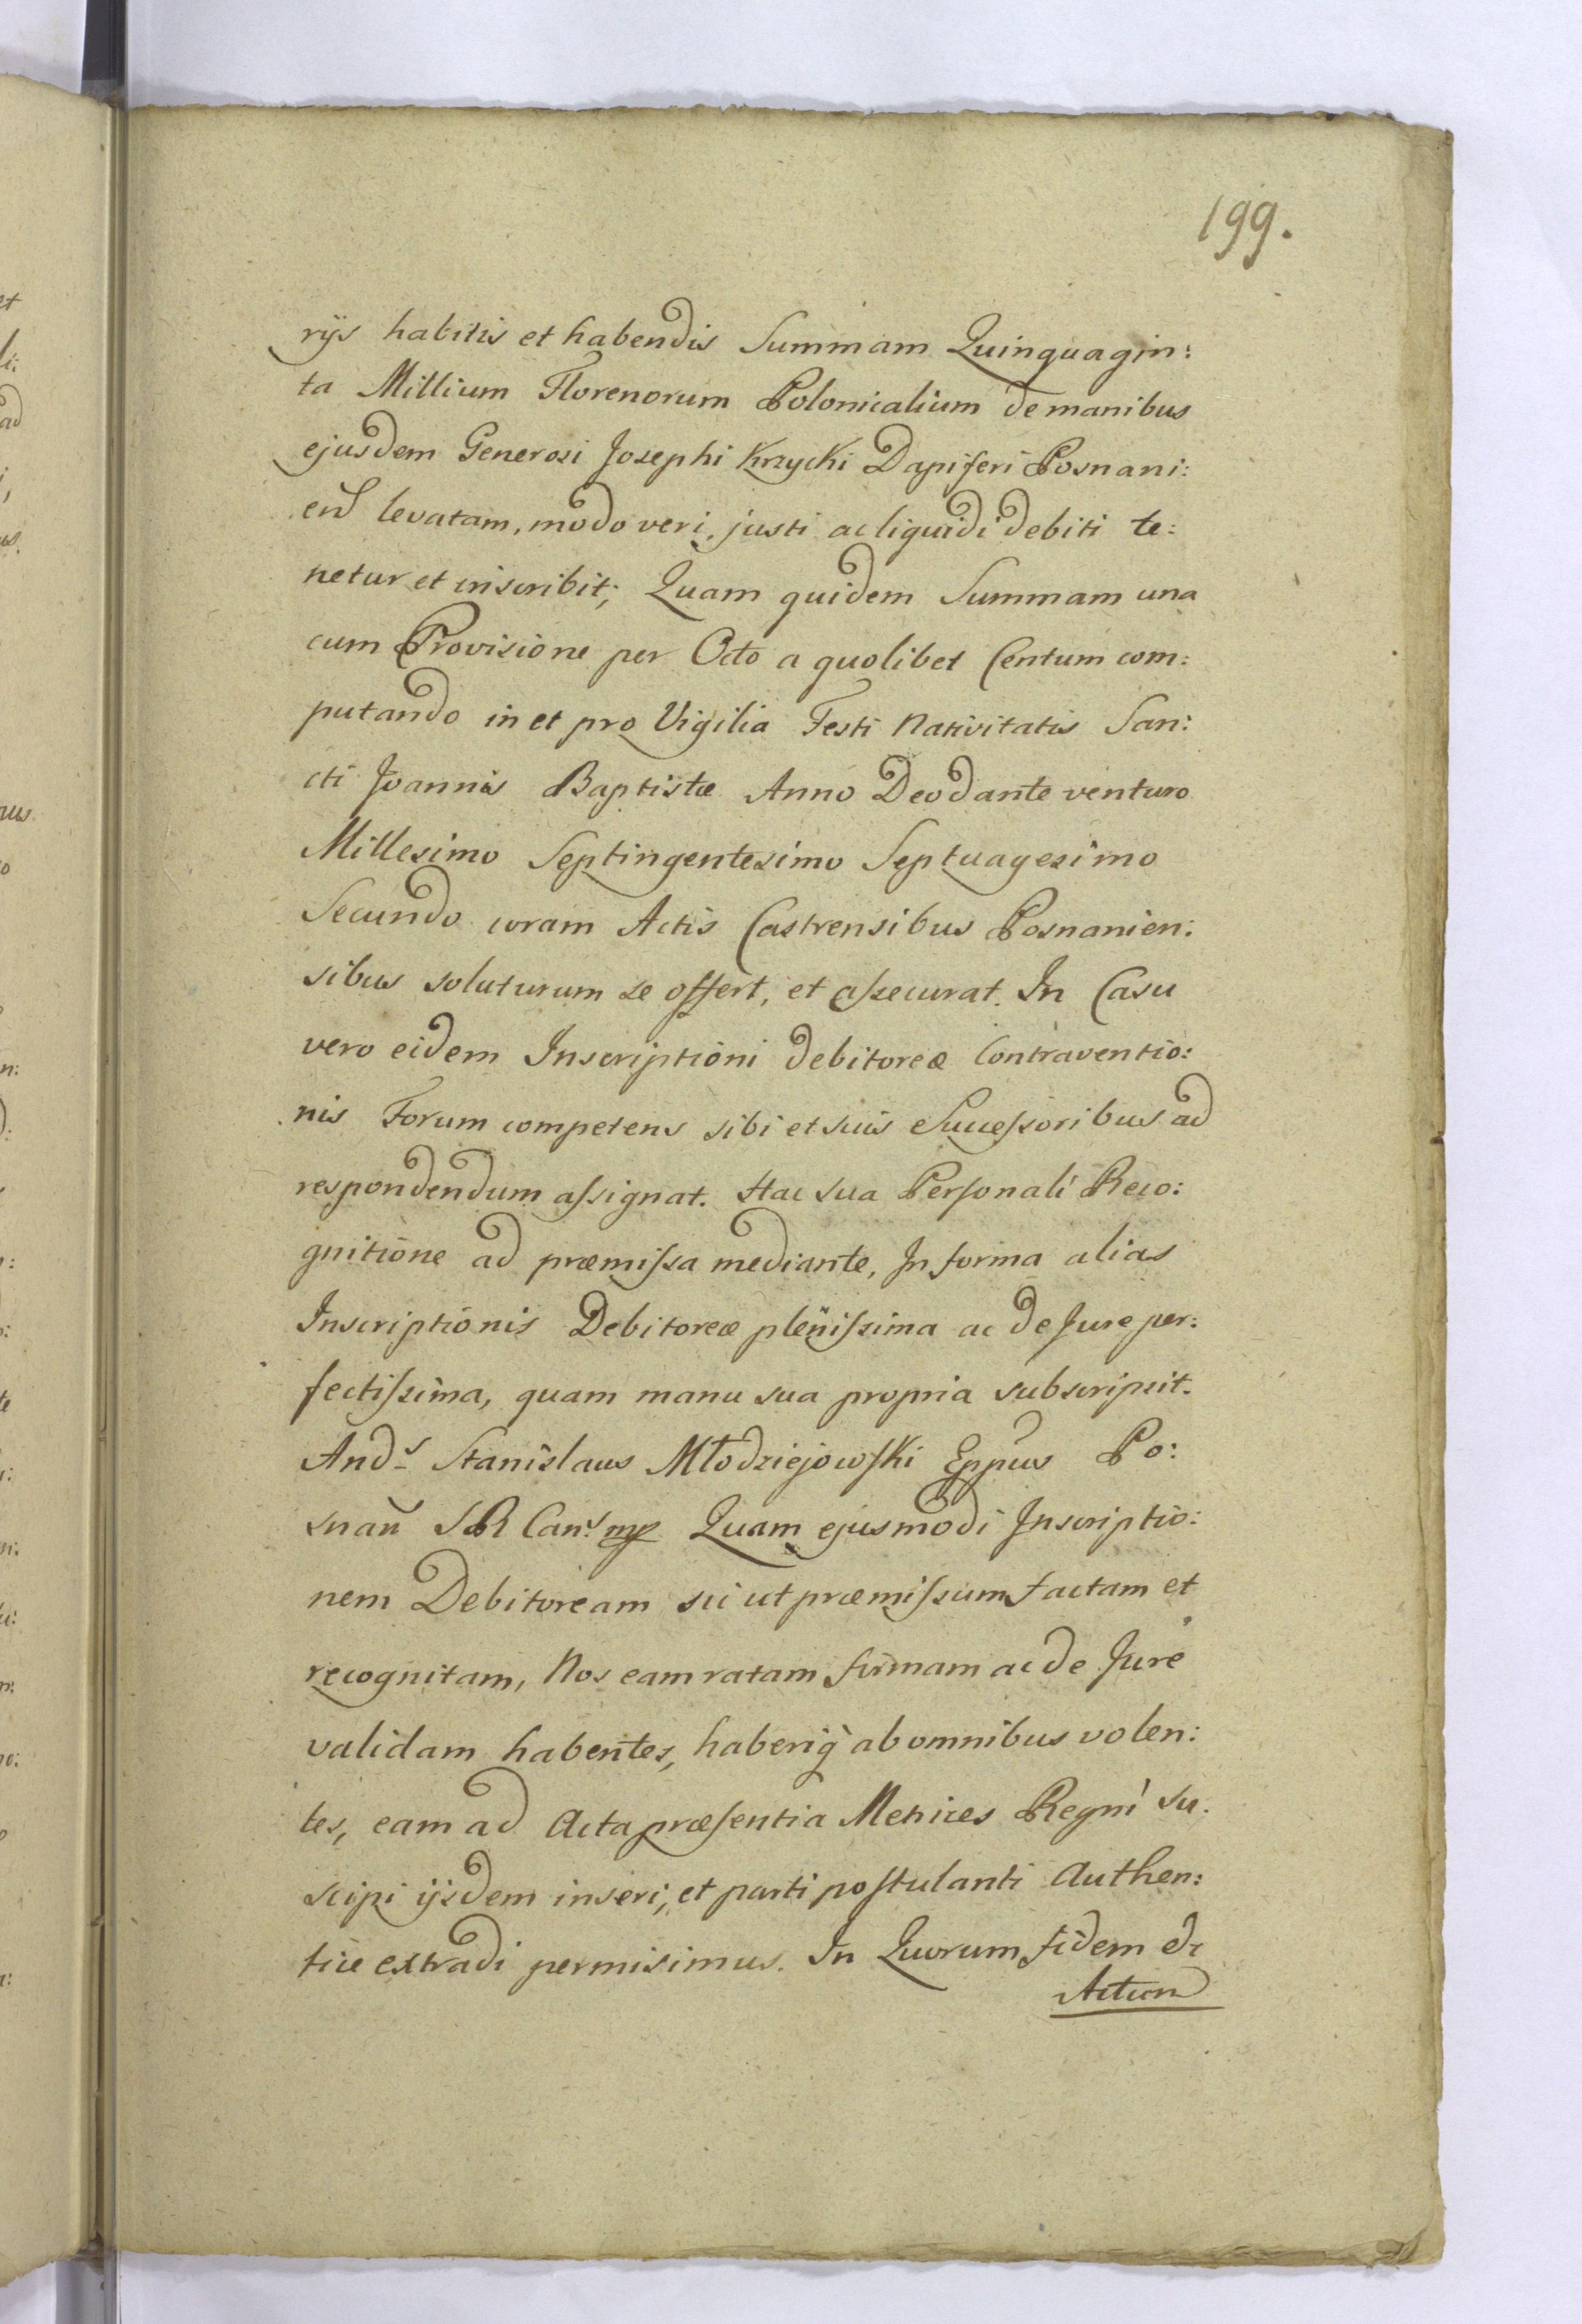 199.
rijs habitis et habendis Summam Quinquagin:
ta Millium Florenorum Polonicalium de manibus
ejusdem Generosi Josephi Krzycki Dapiferi Posnani:
ens levatam, modo veri, justi ac liquidi debiti te:
netur et inscribit; Quam quidem Summam una
cum Provisione per Octo a quolibet Centum com:
putando in et pro Vigilia Festi Nativitatis San:
cti Joannis Baptistæ Anno Deo dante venturo
Millesimo Septingentesimo Septuagesimo
Secundo coram Actis Castrensibus Posnanien:
sibus soluturum se offert, et aſsecurat. In Casu
vero eidem Inscriptioni debitoreæ Contraventio:
nis Forum competens sibi et suis Succeſsoribus ad
respondendum aſsignat. Hac sua Perſonali Reco:
gnitione ad præmiſsa mediante, In forma alias
Inscriptionis Debitoreæ pleniſsima ac de Jure per:
fectiſsima, quam manu sua propria subscripsit.
Andˢ Stanislaus Młodziejowſki Eppus Po:
snan̄ SR Canˢ mp Quam ejusmodi Inscriptio:
nem Debitoream sic ut præmiſsum factam et
recognitam, Nos eam ratam firmam ac de Jure
validam habentes, haberiq̀ ab omnibus volen:
tes, eam ad Acta præſentia Metrices Regni su.
scipi ijsdem inseri, et parti poſtulanti Authen:
tice extradi permisimus. In Quorum fidem &
Actum